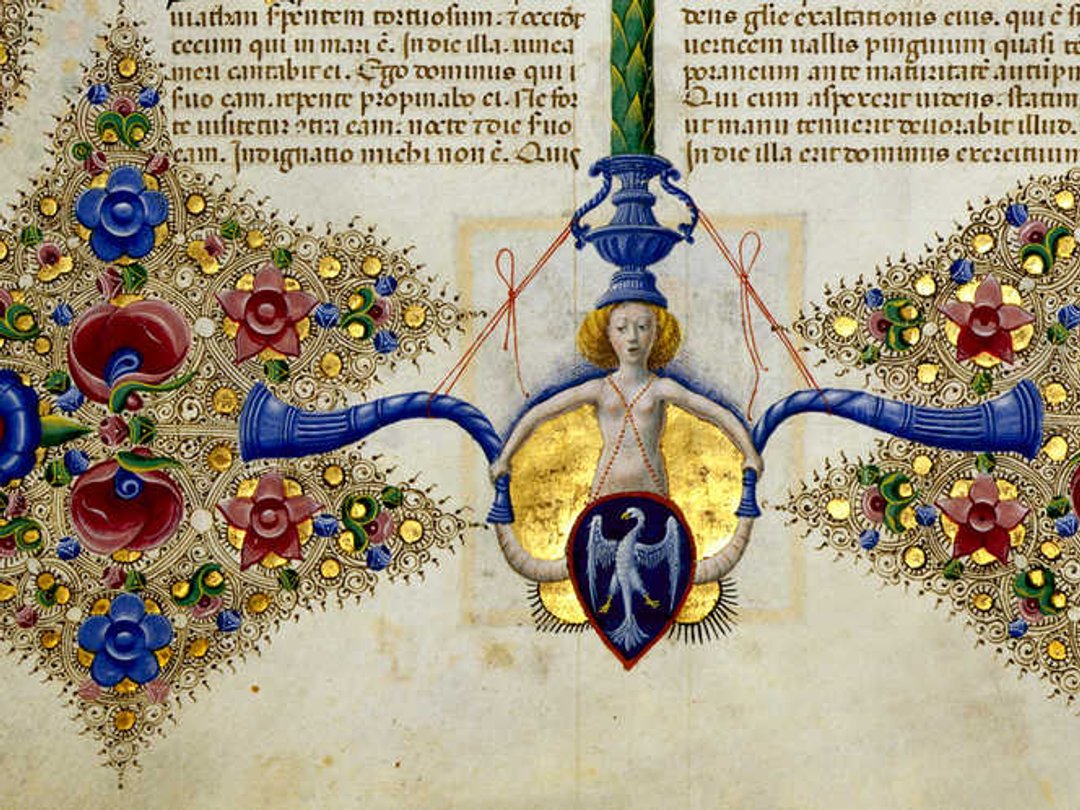 uiathan spentem tortuosum. ⁊ occidꝫ
cecum qui in mari ē. In die illa. uinea
meri cantabit ei. Ego dominus qui
suo eam. repente propinabo ei. Ne for
te uisitetur ɔtra eam. nocte ⁊ die suo
eam. Indignatio michi non ē. Quis
dens glie exaltationis eius. qui ē
uerticem uallis pinguium quasi te
poraneum ante maturitatē autūpn
Qui cum aspexerit uidens. statim
ut manu tenuerit deuorabit illud.
In die illa erit dominus exercituum